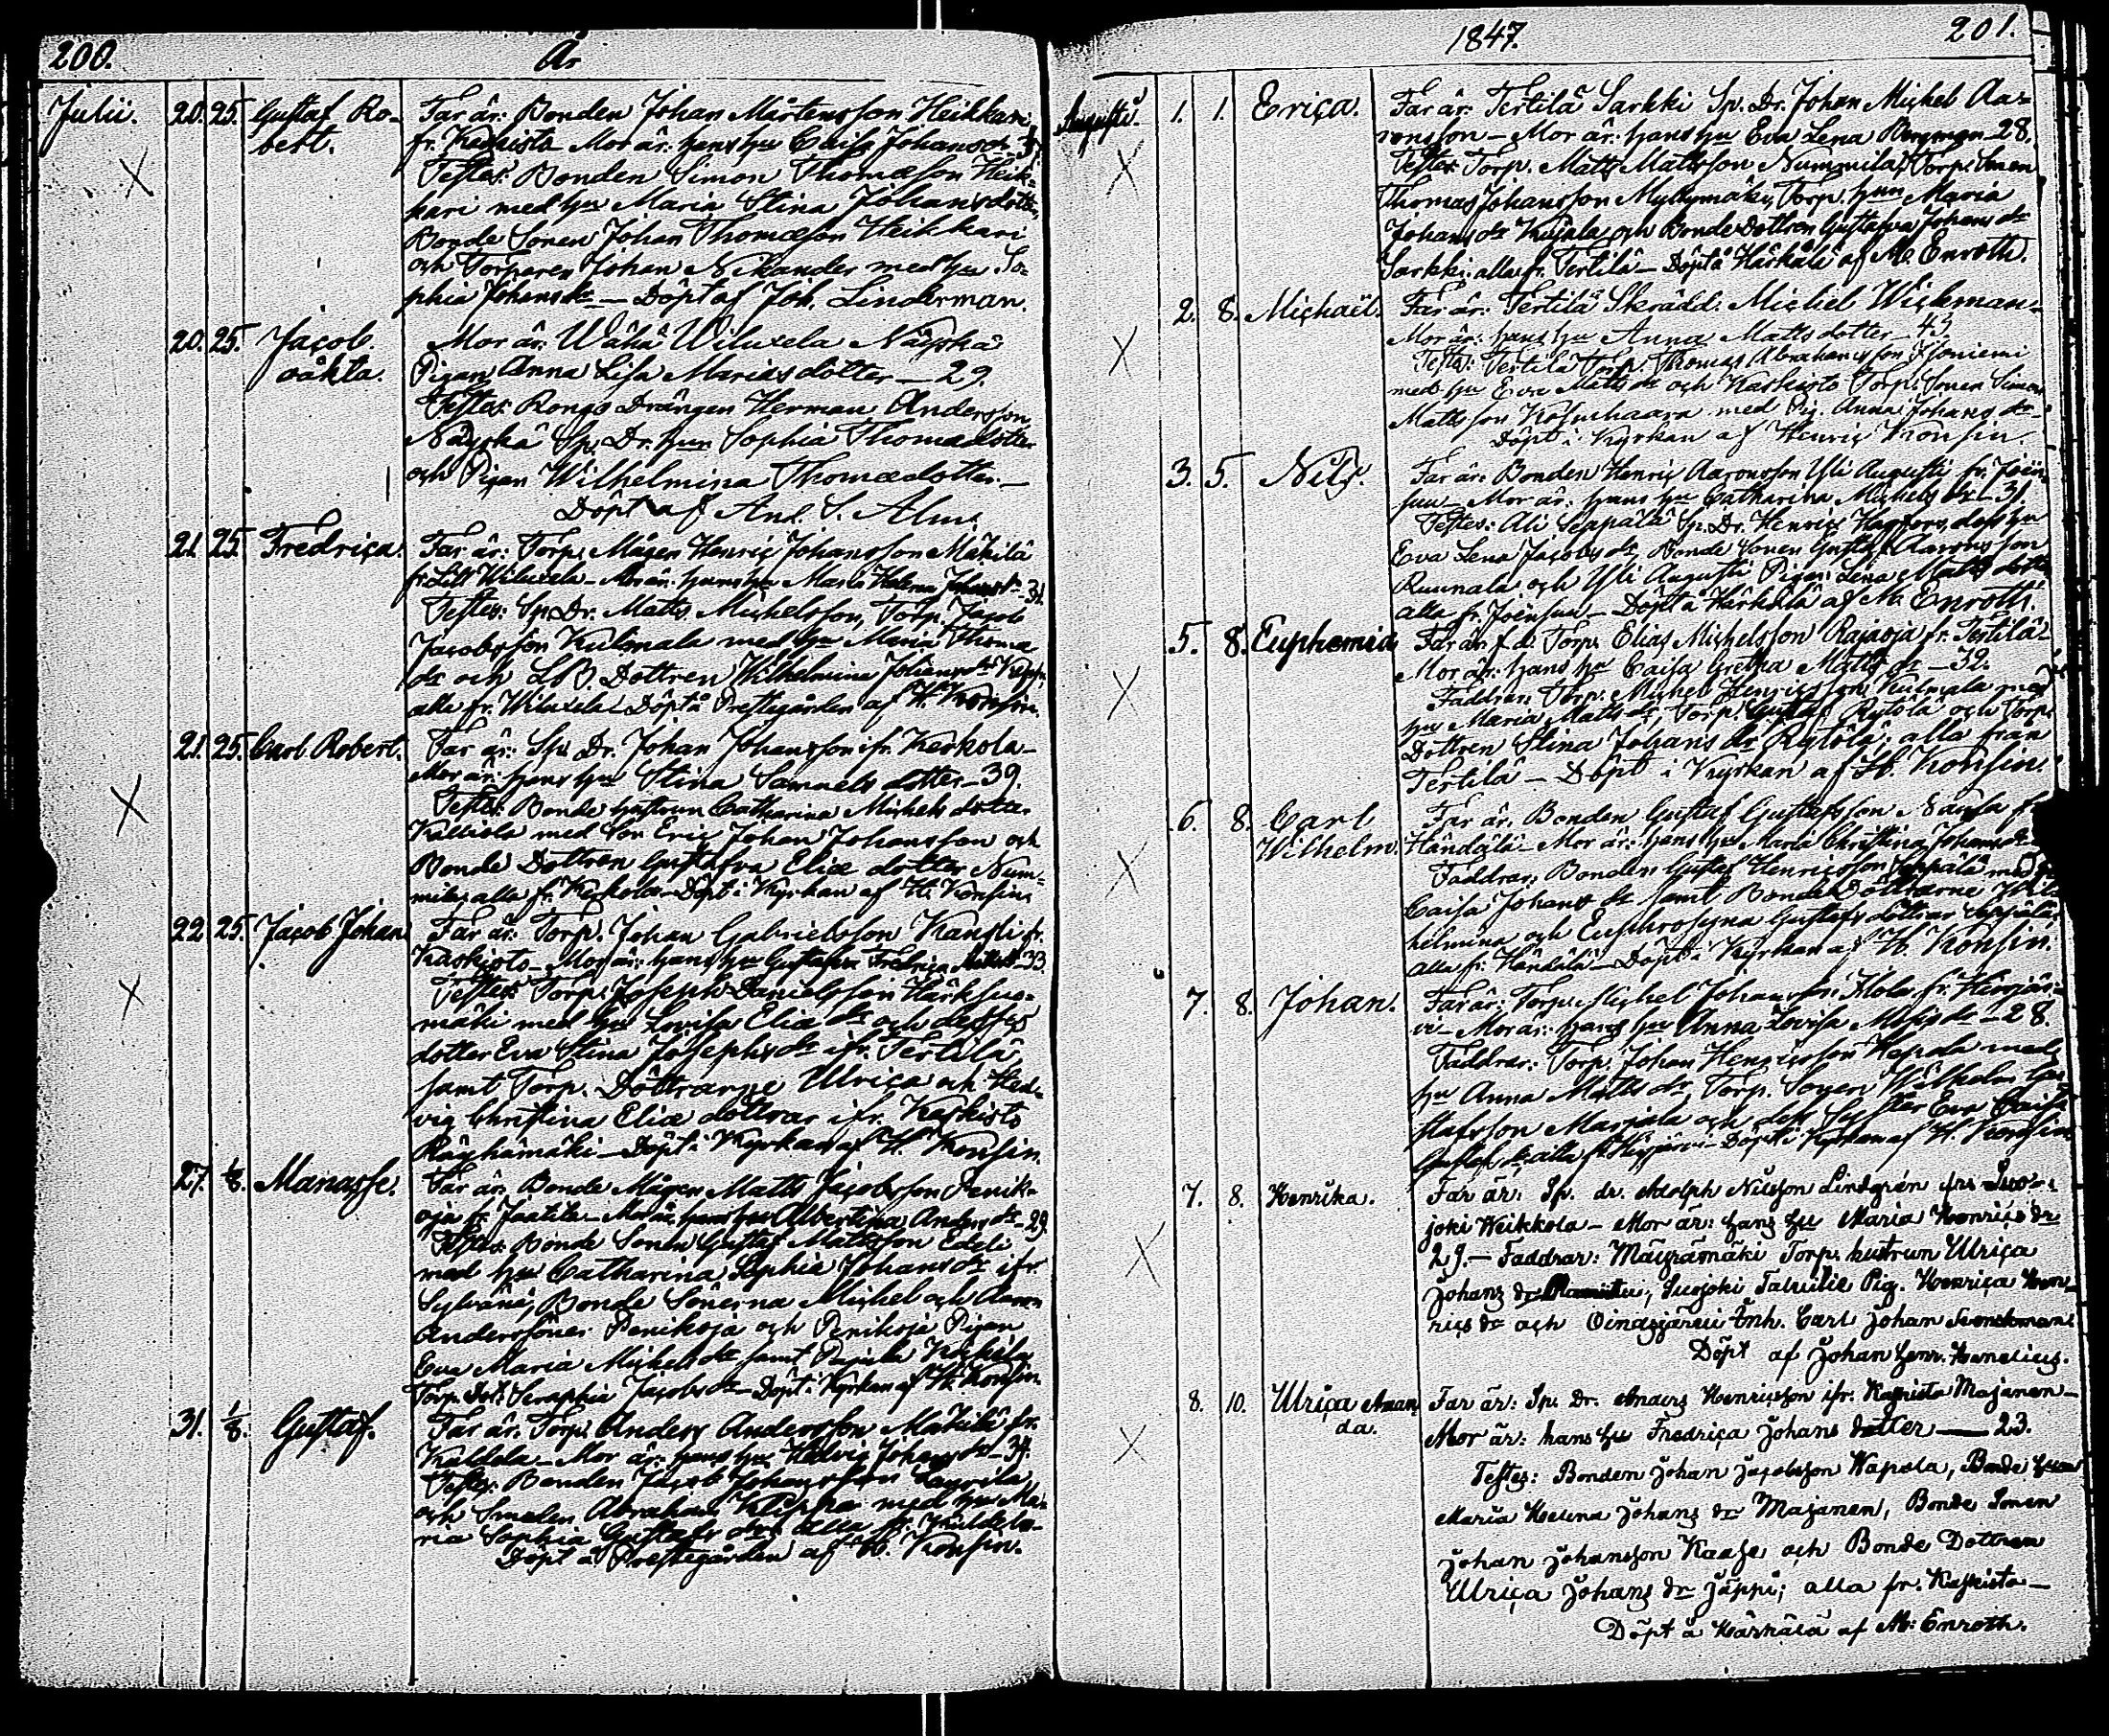 200. År
Julii. 20. 25. Gustaf Ro- Far är: Bonden Johan Mårtensson Heikkari
bert. fr. Kaskisto Mor är: hans hu Caisa Johans dr
Testes: Bonden Simon Thomæson Heik-
kari med hu Maria Stina Johansdotter,
Bonde Sonen Johan Thomæson Heikkari
och Torparen Johan Nikander med hu So-
phia Johans dr — Döpt af Joh. Linderman.
20. 25. Jacob. Mor är: Wähä Wiluxela Näyskä
oäkta. Pigan Anna Lisa Mariasdotter — 29.
Testes: Rongo Drängen Herman Andersson,
Näyskä Sp. Dr. hun Sophia Thomædotter
och Pigan Wilhelmina Thomædotter —
Döpt af And. S. Alm.
21. 25. Fredrica. Far är: Torp. Mågen Henric Johansson Mäkilä
fr. Lill Wiluxela — Mor är: hans hu Maria Helena Johans dr — 31.
Testes: Sp. Dr. Matts Michelsson, Torp. Jacob
Jacobsson Kulmala med hu Maria Thomæ
dr och LB. Dottren Wilhelmina Johans dr
alla fr. Wiluxela — Döpt å Prestegården af H. Konsin.
21. 25. Carl Robert. Far är: Sp. Dr. Johan Johansson ifr. Kerkola —
Mor är: hans hu Stina Samuels dotter — 39.
Testes: Bonde hustrun Catharina Michels dotter
Källiola med Son Eric Johan Johansson och
Bonde Dottren Gustafva Eliæ dotter Num-
mila; alla fr. Kerkola — Döpt i Kyrkan af H. Konsin.
22. 25. Jacob Johan Far är: Torp. Johan Gabrielsson Kangli fr.
Kaskisto — Mor är: hans hu Gustafva Fredrica — 33.
Testes: Torp. Joseph Danielsson Härksuo-
mäki med hu Lovisa Eliæ dr och desses
dotter Eva Stina Josephs dr ifr. Tertilä,
samt Torp. Döttrarne Ulrica och Hed-
vig Christina Eliæ döttrar ifr. Kaskisto
Räyhämäki — Döpt i Kyrkan af H. Konsin.
27. 1/8. Manasse. Far är: Bonde Mågen Matts Jacobsson Penik-
oja fr. Jaatila — Mor är: hans hu Albertina Anders dr — 29.
Testes: Bonde Sonen Gustaf Mattsson Edeli
med hu Catharina Sophia Johans dr ifr.
Sylvänä, Bonde Sönerna Michel och Aaron
Anderssöner Penikoja och Penikoja Pigan
Eva Maria Michels dr samt
Torp. Dot. Seraphia Jacobs dr — Döpt i Kyrkan af H. Konsin
31. 1/8. Gustaf. Far är: Torp. Anders Andersson Mäkilä fr.
Kuldela — Mor är: hans hu Hedvig Johans dr — 34.
Testes: Bonden Jacob Johansson Laurila,
och Smeden Abraham med hu Ma-
ria Sophia Gustafs dr alla fr. Kuldela —
Döpt å Prestegården af H. Konsin.
1847. 201.
Augusti. 1. 1. Erica. Far är: Tertilä Sarkki Sp. Dr. Johan Michel Aa-
ronsson — Mor är: hans hu Eva Lena Bergman — 28.
Testes: Torp. Matts Mattsson Nummila, Torp. Sonen
Thomas Johansson Myllymäki, Torp. hun Maria
Johans dr Kujala och Bonde Dottren Gustafva Johans dr
Sarkki: alla fr. Tertilä — Döpt å Härkälä af M. Enroth.
2. 8. Michaël. Far är: Tertilä Skrädd. Michel Wickman —
Mor är: hans hu Anna Mattsdotter — 43
Testes: Tertilä Torp. Thomas Abrahamsson Isoniemi
med hu Eva Matts dr och Kaskisto Torp. Sonen Simon
Mattsson med Pig. Anna Johans dr —
Döpt i Kyrkan af Henric Konsin.
3. 5. Nils. Far är: Bonden Henric Aaronsson Yli Augusti fr. Joen-
suu — Mor är: hans hu Catharina Michels dr — 31.
Testes: Ali Seppälä Sp. Dr. Henric Hagfors, dess hu
Eva Lena Jacobs dr, Bonde Sonen Gustaf Aaronsson
Ruunala och Yli Augusti Pigan Lena Matts dotter
alla fr. Joensuu — Döpt å Härkälä af M. Enroth.
5. 8. Euphemia Far är: f.d. Torp. Elias Michelsson Rajaoja fr. Tertilä —
Mor är: hans hu Caisa Gretha Matts dr — 39.
Faddrar: Torp. Michel Henricsson Kulmala med
hu Maria Matts dr, Torp. Gustaf Rytölä och Torp.
Dottren Stina Johans dr Rytölä; alla från
Tertilä — Döpt i Kyrkan af H. Konsin.
6. 8. Carl Far är: Bonden Gustaf Gustafsson fr
Wilhelm. Händälä — Mor är: hans hu Maria Christina Johans dr
Faddrar: Bonden Gustaf Henricsson Seppälä med hu
Caisa Johans dr samt Bonde Döttrarne Wil-
helmina och Euphrosyna Gustafs döttrar Seppälä;
alla fr. Händälä — Döpt i Kyrkan af H. Konsin.
7. 8. Johan. Far är: Torp. Michel Johansson fr. Hirsjär-
vi — Mor är: hans hu Anna Lovisa Mosis dr — 28.
Faddrar: Torp. Johan Henricsson med
hu Anna Matts dr, Torp. Sonen Wilhelm Gu-
stafsson Marjala och dess Syster Eva Caisa
Gustafs dr; alla fr. Hirsjärvi — Döpt i Kyrkan af H. Konsin
7. 8. Henrika. Far är: Sp. dr. Adolph Nilsson Lindgrén fr. Suo-
joki Weikkola — Mor är: hans hu Maria Henrics dr
29. — Faddrar: Mäyrämäki Torp. hustrun Ulrica
Johans dr, Suojoki Pig. Henrica Hen-
rics dr och Oinasjärvi Inh. Carl Johan
Döpt af Johan Henr. Henelius.
8. 10. Ulrica Aman- Far är: Sp. Dr. Anders Henricsson ifr. Kaskisto Majanen —
da. Mor är: hans hu Fredrica Johans dotter — 23.
Testes: Bonden Johan Jacobsson Wapola, Bonde hun
Maria Helena Johans dr Majanen, Bonde Sonen
Johan Johansson Kaase och Bonde Dottren
Ulrica Johans dr Jäppi; alla fr. Kaskisto —
Döpt å Härkälä af M: Enroth.